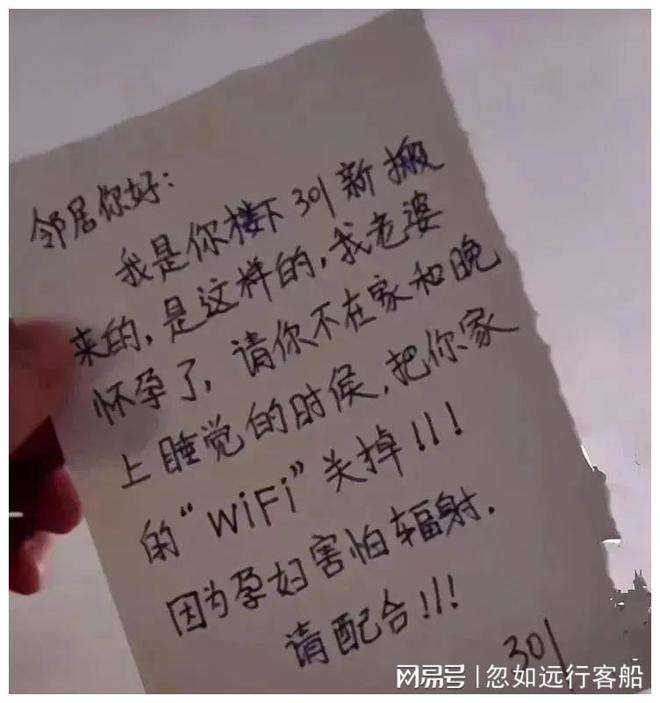 邻居你好:
我是你楼下301新搬
来的,是这样的,我老婆
怀孕了,请你不在家和晚
上睡觉的时候,把你家
的“WiFi”关掉!!!
因为孕妇害怕辐射.
请配合!!!
301
网易号 | 忽如远行客船